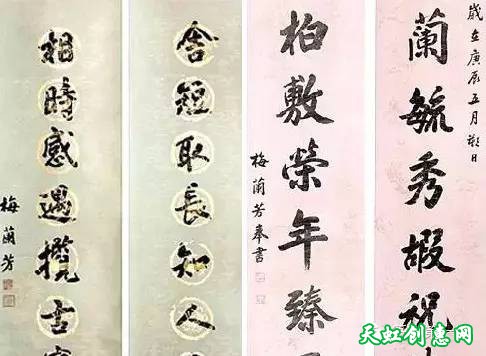 歲在庚辰五月朔日
蘭毓秀嘏祝
柏敷榮年臻
梅蘭芳奉書
舍短取長知人
相時感遇攬古
梅蘭芳
天虹创意网